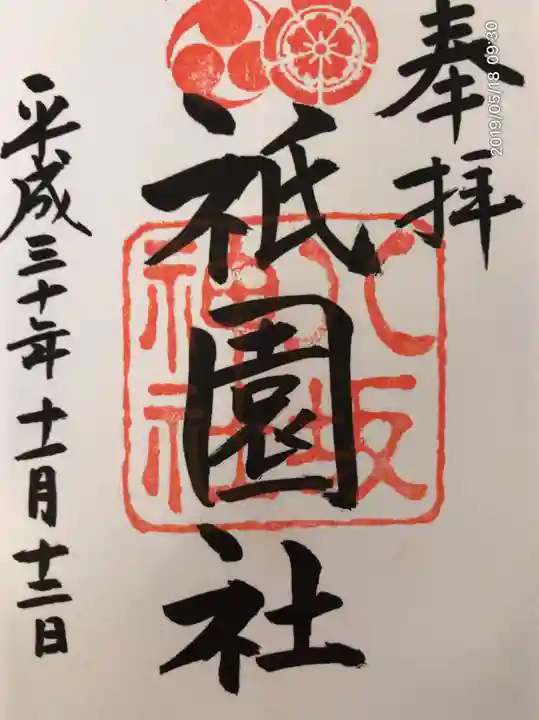 奉拝
八坂
神社
祇園社
平成三十年十一月十三日
2019/05/18 09:30